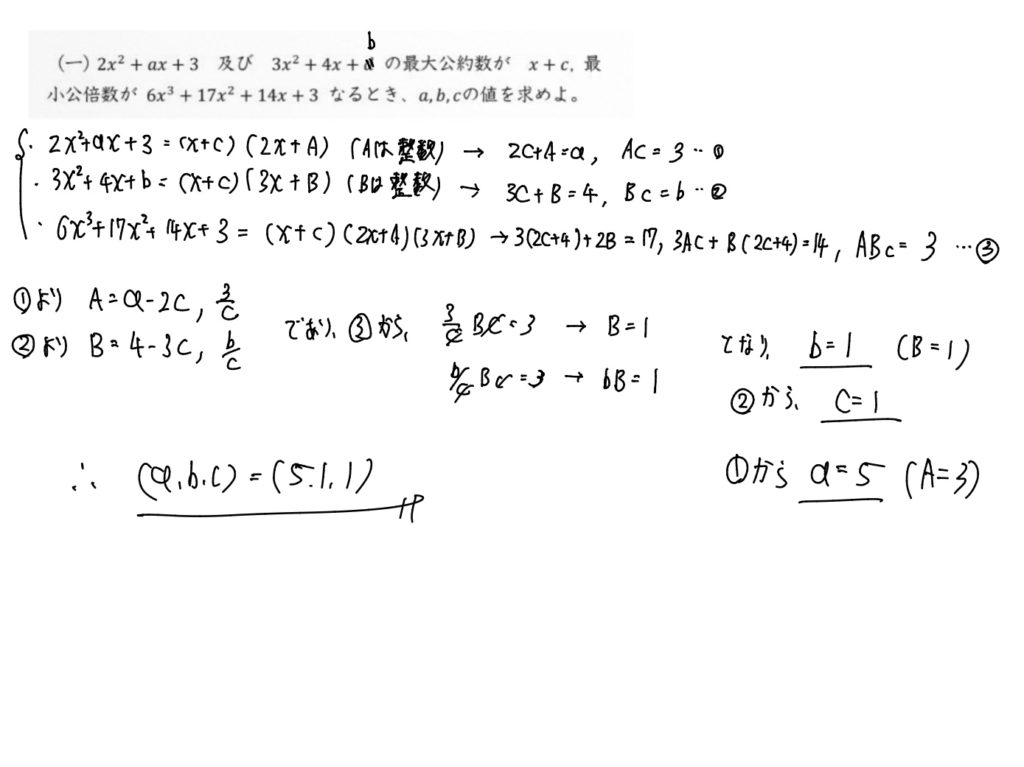 b
(一) 2x² + ax + 3 及び 3x² + 4x + の最大公約数が x + c, 最
小公倍数が 6x³ + 17x² + 14x + 3 なるとき、a, b, cの値を求めよ。
・2x²+ax+3 = (x+c)(2x+A) (Aは整数) → 2c+A=a, Ac=3 … ①
・3x²+4x+b = (x+c)(3x+B) (Bは整数) → 3c+B=4, Bc=b … ②
・6x³+17x²+14x+3 = (x+c)(2x+A)(3x+B) → 3(2c+A)+2B=17, 3Ac+B(2c+A)=14, ABc=3 … ③
①より A=a-2c, 3/c
②より B=4-3c, b/c
であり、③から、 3/c Bc=3 → B=1
b/c Bc=3 → bB=1
となり、 b=1 (B=1)
②から、 c=1
①から a=5 (A=3)
∴ (a.b.c)=(5.1.1)